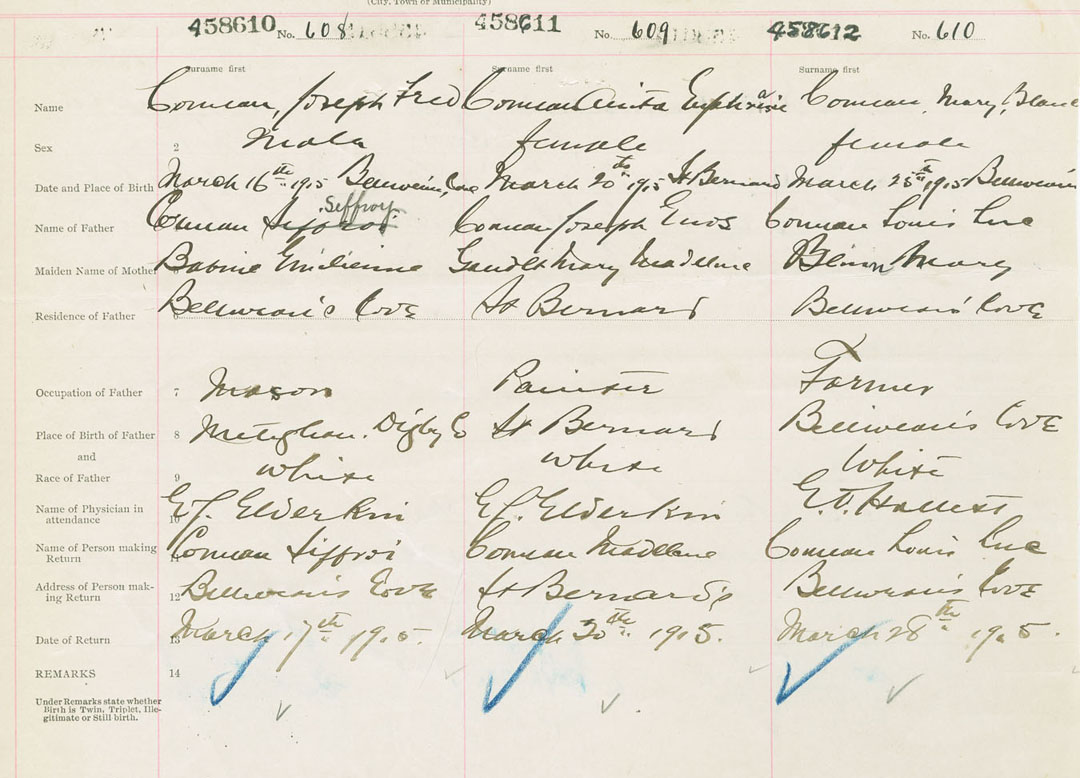 (City, Town or Municipality)
458610 No. 608 458611 No. 609 458612 No. 610
Surname first Surname first Surname first
Name Comeau, Joseph Fred Comeau Anita Euphrasie Comeau, Mary, Blanc
Sex 2 Male female female
Date and Place of Birth March 16th 1915 Belliveau's Cove March 20th 1915 St Bernard March 25th 1915 Belliveau's
Seffroy.
Name of Father Comeau Siffroi Comeau Joseph Enos Comeau Louis Luc
Maiden Name of Mother Babine Emilienne Gaudet Mary Madlene Mary
Residence of Father 6 Belliveau's Cove St Bernard Belliveau's Cove
Occupation of Father 7 Mason Painter Farmer
Place of Birth of Father 8 Meteghan. Digby Co St Bernard Belliveau's Cove
and
Race of Father 9 White White White
Name of Physician in
attendance 10 E. J. Elderkin E. J. Elderkin
Name of Person making
Return 11 Comeau Siffroi Comeau Madlene Comeau Louis Luc
Address of Person mak-
ing Return 12 Belliveau's Cove St Bernard's Belliveau's Cove
Date of Return 13 March 17th 1915. March 20th 1915. March 28th 1915.
REMARKS 14
Under Remarks state whether
Birth is Twin, Triplet, Ille-
gitimate or Still birth.